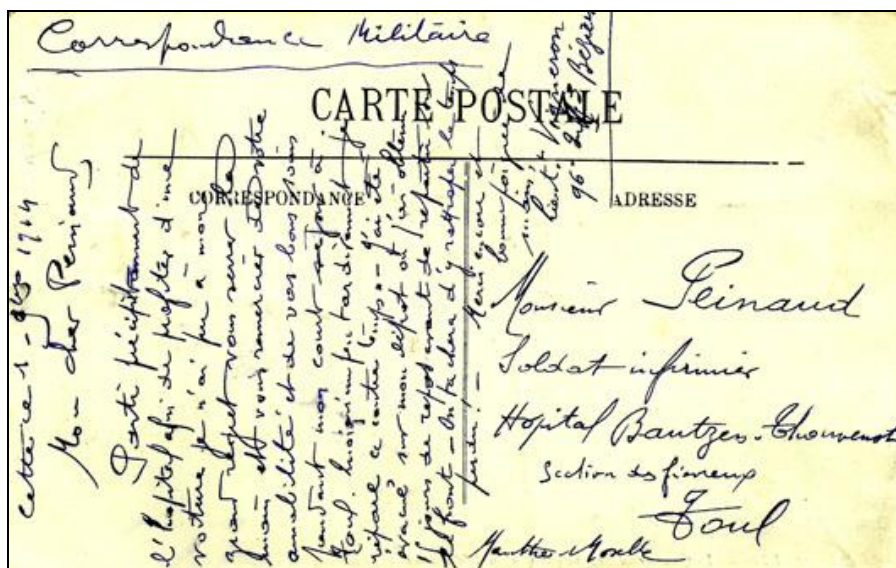 Correspondance Militaire
CARTE POSTALE
CORRESPONDANCE
ADRESSE
Cette le 1 - 1914
Mon cher Peinaud
Parti précipitamment de
l'hopital afin de profiter d'une
voiture je n'ai pu à mon
grand regret vous serrer la
main et vous remercier de votre
amabilité et de vos bons soins
pendant mon court séjour à
Toul. un peu tardivement je
répare ce contre temps - J'ai été
évacué sur mon dépot où j'ai obtenu
jours de repos avant de repartir
front - On tachera d'y rattraper le temps
perdu. - Merci encore et
bonne poignée de
mains
Lieut. Vigneron
96e Béziers
Monsieur Peinaud
Soldat infirmier
Hopital Bautzen-Thouvenot
Section des fievreux
Toul
Meurthe Moselle